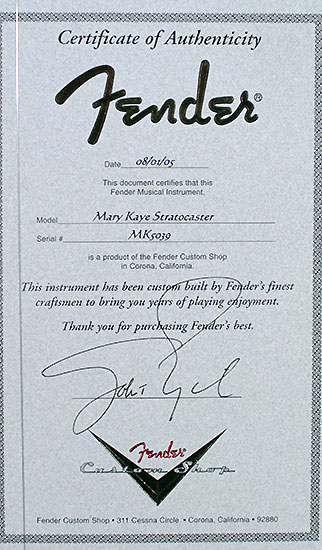 Certificate of Authenticity
Fender®
Date 08/01/05
This document certifies that this
Fender Musical Instrument,
Model Mary Kaye Stratocaster
Serial # MK5039
is a product of the Fender Custom Shop
in Corona, California.
This instrument has been custom built by Fender's finest
craftsmen to bring you years of playing enjoyment.
Thank you for purchasing Fender's best.
Fender
Custom Shop
Fender Custom Shop • 311 Cessna Circle • Corona, California • 92880